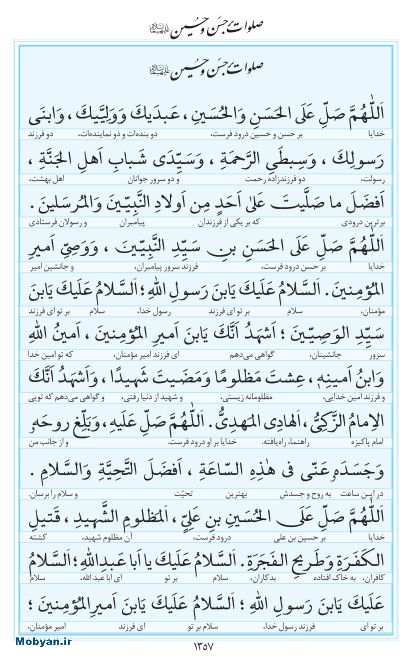 صلوات بر حسن و حسین علیهماالسلام
صلوات بر حسن و حسین علیهماالسلام
اَللّٰهُمَّ صَلِّ عَلَی الْحَسَنِ وَالْحُسَیْنِ ، عَبْدَیْكَ وَوَلِیَّیْكَ ، وَابْنَیْ
خدایا بر حسن و حسین درود فرست، دو بنده‌ات و دو نماینده‌ات، دو فرزند
رَسولِكَ ، وَسِبْطَیِ الرَّحْمَةِ ، وَسَیِّدَیْ شَبابِ اَهلِ الجَنَّةِ ،
رسولت، دو فرزندزاده رحمت و دو سرور جوانان اهل بهشت،
اَفضَلَ ما صَلَّیْتَ عَلىٰ اَحَدٍ مِن اَولادِ النَّبِیّینَ وَالمُرسَلینَ .
برترین درودی که بر یکی از فرزندان پیامبران و رسولان فرستادی
اَللّٰهُمَّ صَلِّ عَلَی الحَسَنِ بنِ سَیِّدِ النَّبِیّینَ ، وَوَصِیِّ اَمیرِ
خدایا بر حسن درود فرست، فرزند سرور پیامبران، و جانشین امیر
المُؤمِنینَ . اَلسَّلامُ عَلَیكَ یَابنَ رَسولِ اللهِ ؛ اَلسَّلامُ عَلَیكَ یَابنَ
مؤمنان، سلام بر تو ای فرزند رسول خدا، سلام بر تو ای فرزند
سَیِّدِ الوَصِیّینَ ؛ اَشهَدُ اَنَّكَ یَابنَ اَمیرِ المُؤمِنینَ ، اَمینُ اللهِ
سرور جانشینان، گواهی می‌دهم ای فرزند امیر مؤمنان، که تو امین خدا
وَابنُ اَمینِهِ ، عِشتَ مَظلومًا وَمَضَیتَ شَهیدًا ، وَاَشهَدُ اَنَّكَ
و فرزند امین خدایی، مظلومانه زیستی، و شهید از دنیا رفتی، و گواهی می‌دهم که تویی
الاِمامُ الزَّكِیُّ ، الهادِی المَهدِیُّ . اَللّٰهُمَّ صَلِّ عَلَیهِ، وَبَلِّغ روحَهُ
امام پاکیزه راهنما، راه‌یافته. خدایا بر او درود فرست، و از جانب من
وَجَسَدَهُ عَنّی فی هٰذِهِ السّاعَةِ ، اَفضَلَ التَّحِیَّةِ وَالسَّلامِ .
در این ساعت به روح و جسدش بهترین تحیّت و سلام را برسان.
اَللّٰهُمَّ صَلِّ عَلَی الحُسَینِ بنِ عَلِیٍّ ، المَظلومِ الشَّهیدِ ، قَتیلِ
خدایا بر حسین بن علی درود فرست، آن مظلوم شهید، کشته
الكَفَرَةِ وَطَریحِ الفَجَرَةِ . اَلسَّلامُ عَلَیكَ یا اَبا عَبدِاللهِ؛ اَلسَّلامُ
کافران، به خاک افتاده بدکاران، سلام بر تو ای ابا عبدالله، سلام
عَلَیكَ یَابنَ رَسولِ اللهِ ؛ اَلسَّلامُ عَلَیكَ یَابنَ اَمیرِالمُؤمِنینَ ؛
بر تو ای فرزند رسول خدا، سلام بر تو ای فرزند امیر مؤمنان،
۱۳۵۷
Mobyan.ir